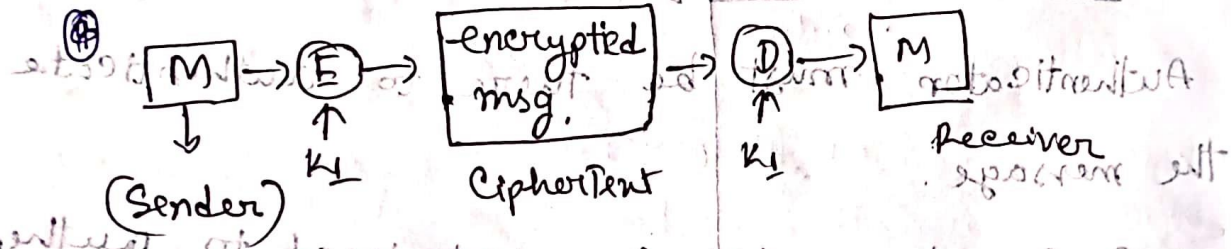 M → E → encrypted msg. → D → M
K1 K1
(Sender) CipherText Receiver